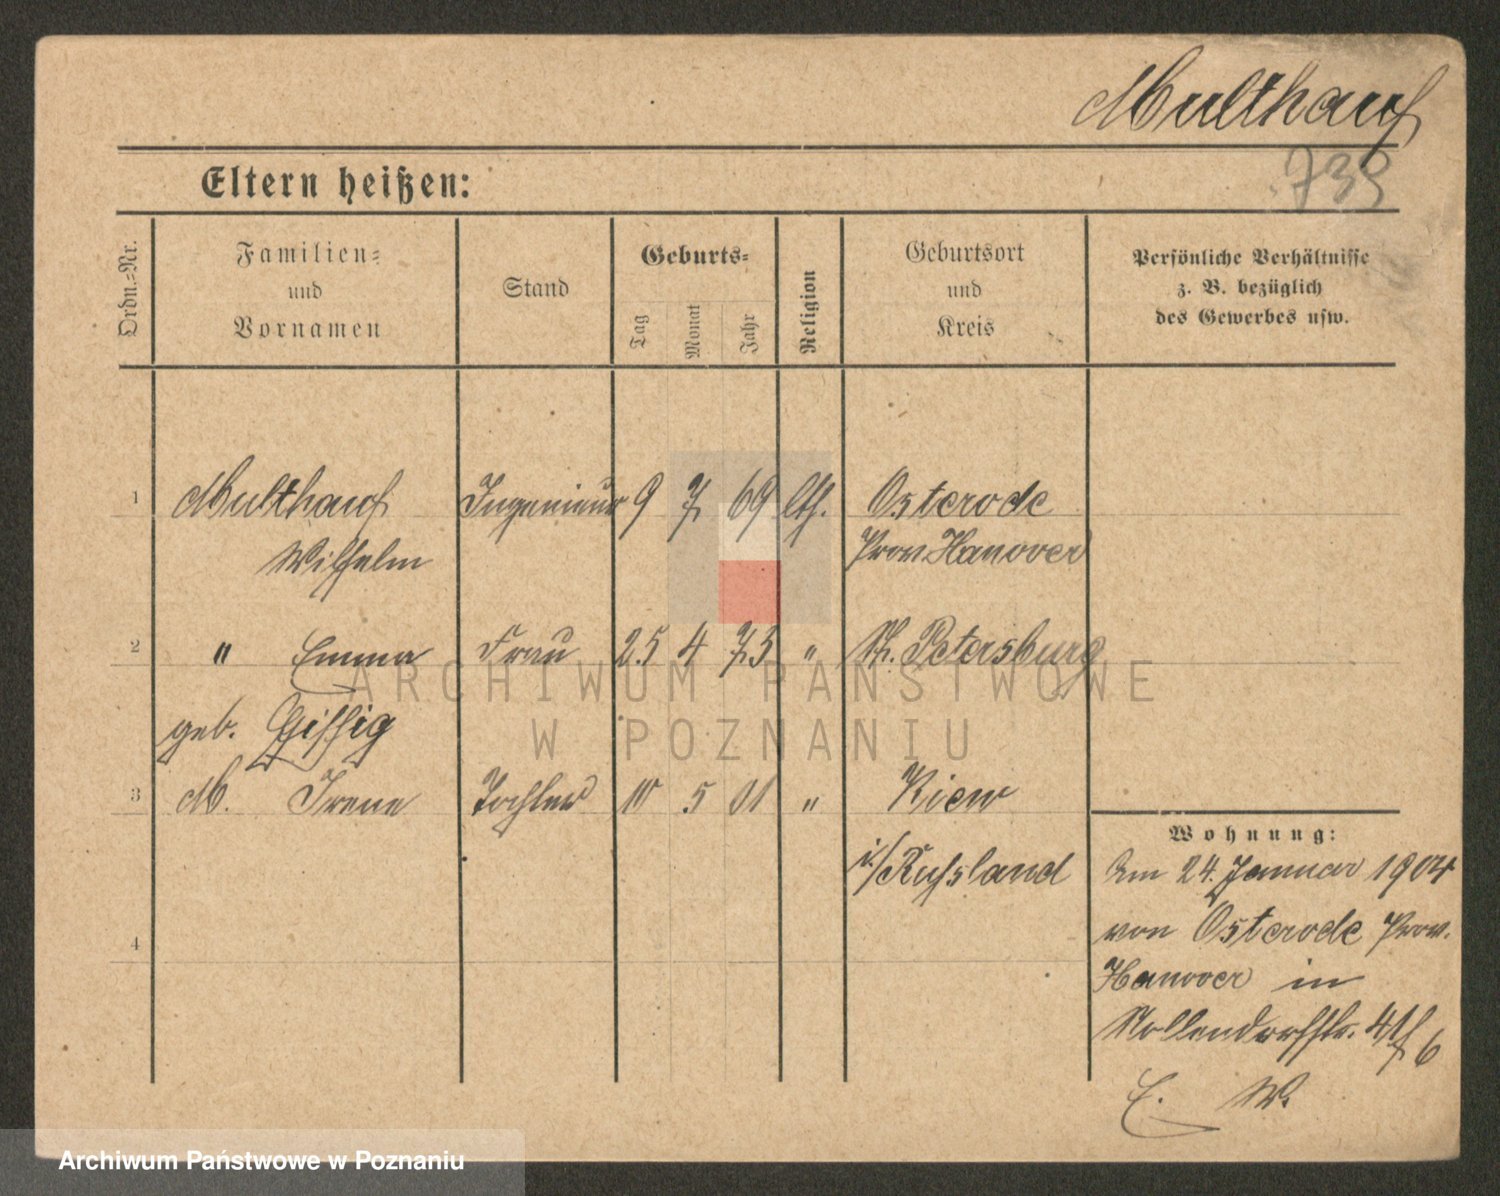 Multhauf
739
Eltern heißen:
Ordn.=Nr.
Familien=
und
Vornamen
Stand
Geburts=
Tag
Monat
Jahr
Religion
Geburtsort
und
Kreis
Persönliche Verhältnisse
z. B. bezüglich
des Gewerbes usw.
1 Multhauf Ingenieur 9 7 69 lth. Osterode
Wilhelm Prov. Hanover
2 " Emma Frau 25 4 73 " St. Petersburg
geb.
3 M. Irene Tochter 10 5 01 " Kiew
i/Russland
4
Wohnung:
Am 24. Januar 1904
von Osterode Prov.
Hanover in
Nollendorfstr. 41/6
E. W.
ARCHIWUM PAŃSTWOWE
W POZNANIU
Archiwum Państwowe w Poznaniu